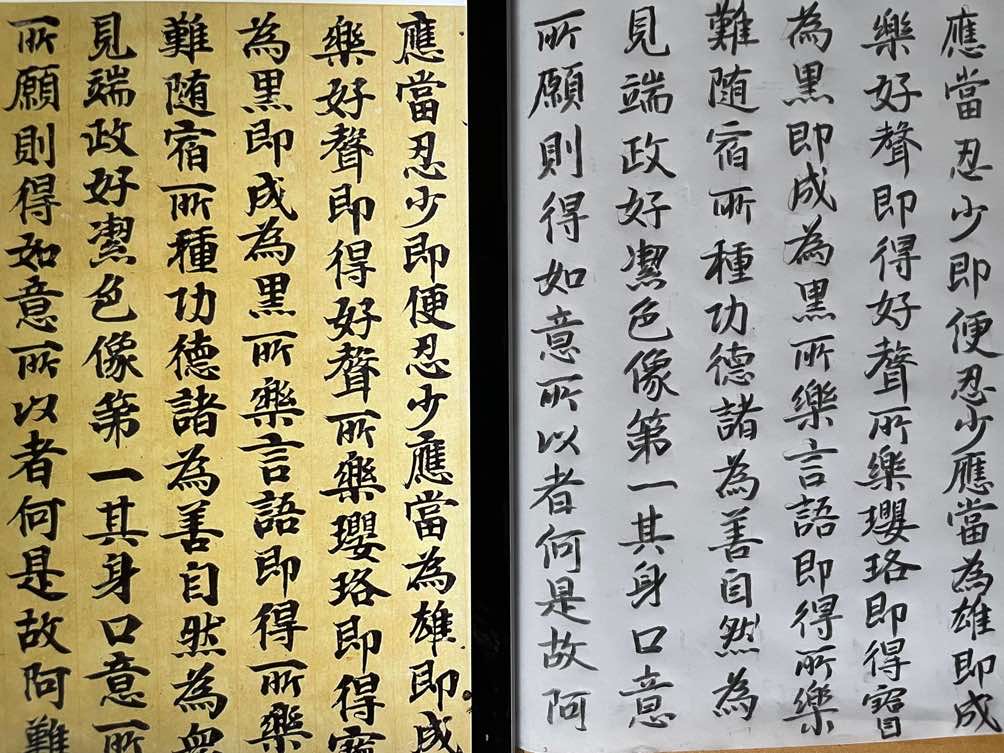 應當忍少即便忍少應當為雄即成
樂好聲即得好聲所樂瓔珞即得寶
為黑即成為黑所樂言語即得所樂
難随宿所種功德諸為善自然為衆
見端政好潔色像第一其身口意所
所願則得如意所以者何是故阿難
應當忍少即便忍少應當為雄即成
樂好聲即得好聲所樂瓔珞即得寶
為黑即成為黑所樂言語即得所樂
難随宿所種功德諸為善自然為
見端政好潔色像第一其身口意
所願則得如意所以者何是故阿